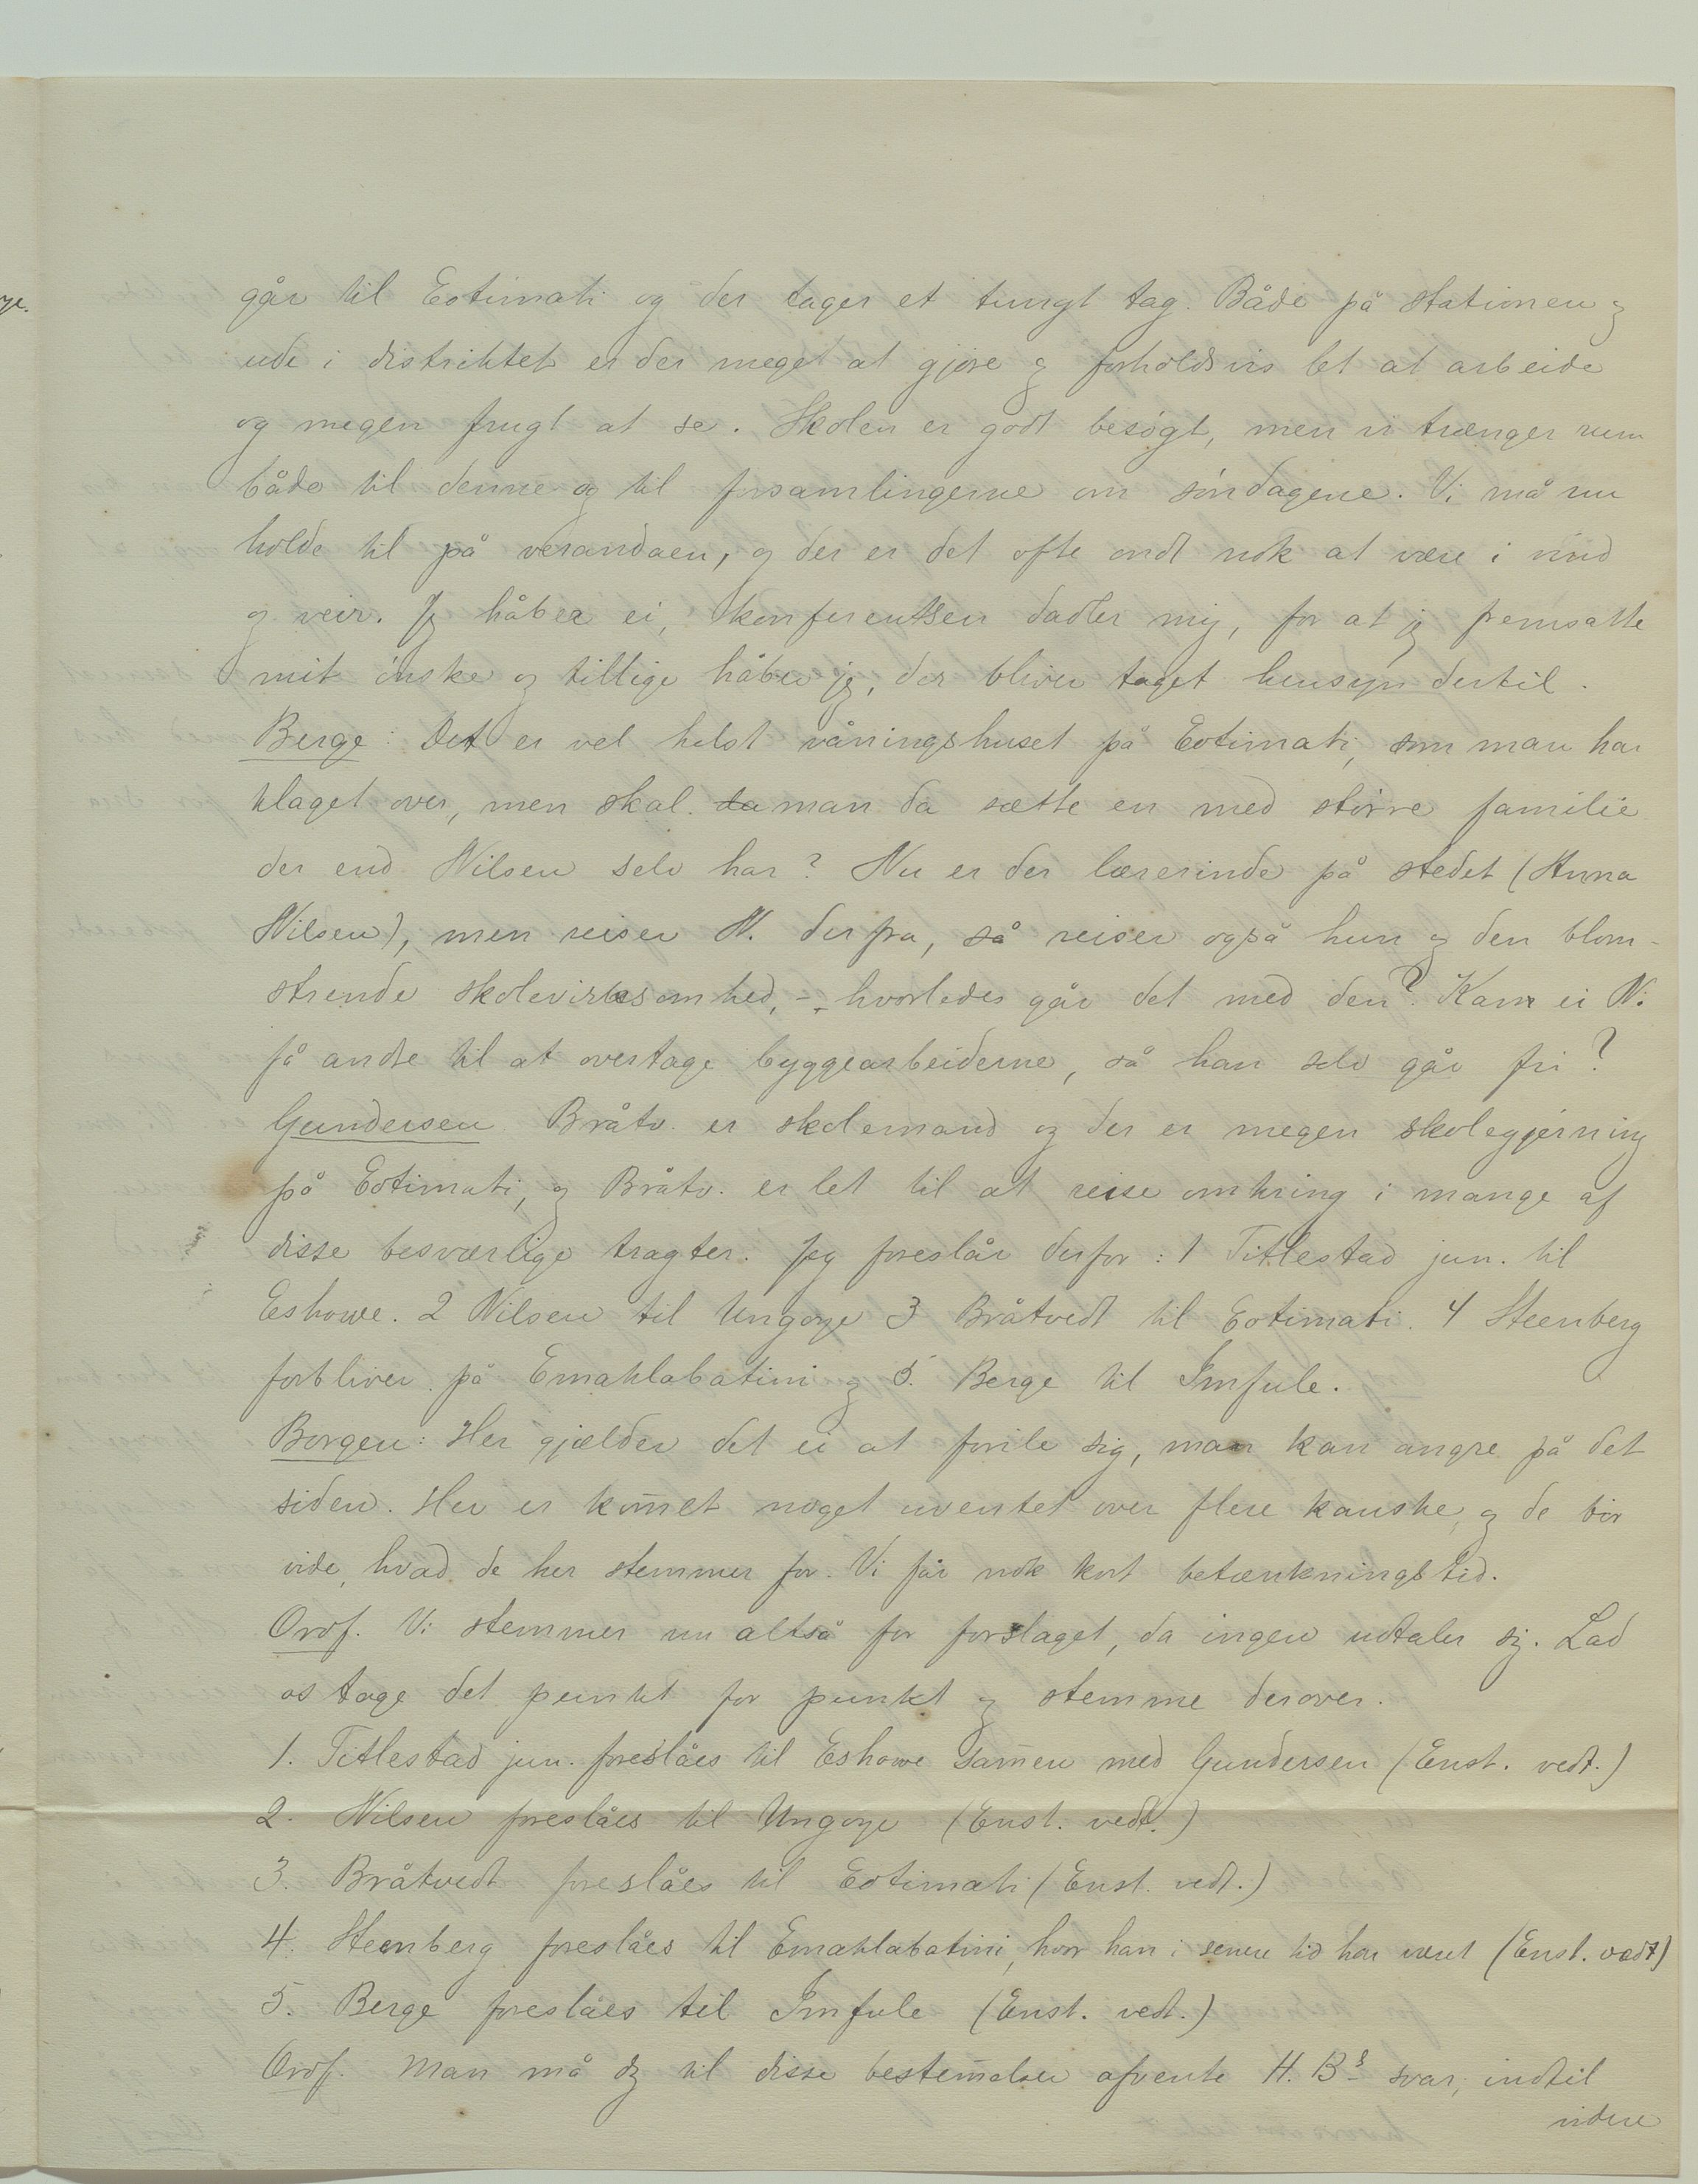 går til Eotimati og der tager et tungt tag. Både på stationen og
ude i distriktet er der meget at gjøre og forholdsvis let at arbeide
og megen frugt at se. Skolen er godt besøgt, men vi trænger rum
både til denne og til forsamlingerne om søndagene. Vi må nu
holde til på verandaen, og der er det ofte ondt nok at være i vind
og veir. Jeg håber ei, konferentsen dadler mig, for at jeg fremsatte
mit ønske og tillige håber jeg, der bliver taget hensyn dertil.
Berge: Det er vel helst våningshuset på Eotimati, som man har
klaget over, men skal da man da sætte en med større familie
der end Nilsen selv har? Nu er der lærerinde på stedet (Anna
Nilsen), men reiser N. derfra, så reiser også hun og den blom-
strende skolevirksomhed, - hvorledes går det med den? Kan ei N.
få andre til at overtage byggearbeiderne, så han selv går fri?
Gundersen Bråtv. er skolemand og der er megen skolegjerning
på Eotimati, og Bråtv. er let til at reise omkring i mange af
disse besværlige tragter. Jeg foreslår derfor: 1 Titlestad jun. til
Eshowe. 2 Nilsen til Ungoye 3 Bråtvedt til Eotimati. 4 Steenberg
forbliver på Emahlabatini og 5. Berge til Imfule.
Borgen: Her gjælder det ei at forile sig, man kan angre på det
siden. Her er kom̅et noget uventet over flere kanske, og de bør
vide, hvad de her stemmer for. Vi får nok kort betænkningstid.
Ordf. Vi stemmer nu altså for forslaget, da ingen udtaler sig. Lad
os tage det punkt for punkt og stemme derover.
1. Titlestad jun. foreslåes til Eshowe sam̅en med Gundersen (Enst. vedt.)
2. Nilsen foreslåes til Ungoye (Enst. vedt.)
3. Bråtvedt foreslåes til Eotimati (Enst. vedt.)
4. Steenberg foreslåes til Emahlabatini, hvor han i senere tid har været (Enst. vedt)
5. Berge foreslåes til Imfule (Enst. vedt.)
Ordf. Man må og til disse bestem̅elser afvente H. Bs svar, indtil
videre